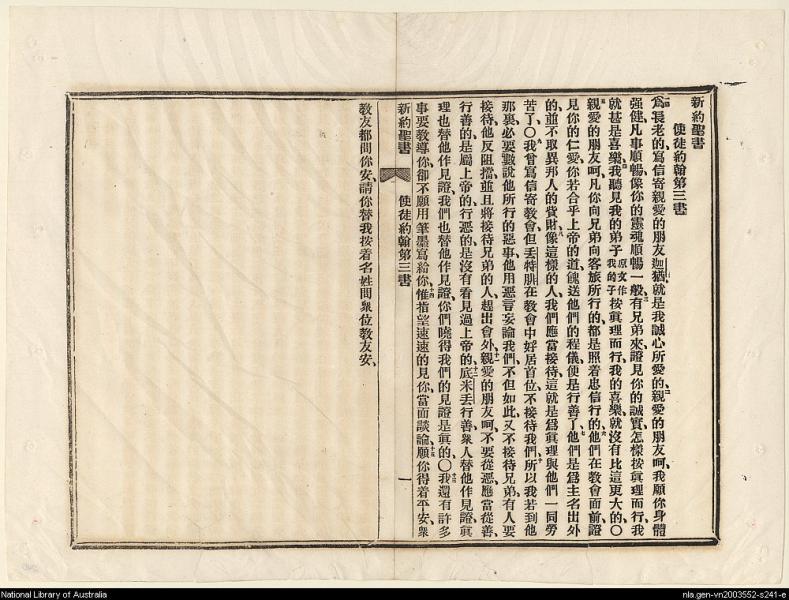 新約聖書
使徒約翰第三書
做長老的寫信寄親愛的朋友迦猶、就是我誠心所愛的、親愛的朋友呵、我願你身體
强健凡事順暢像你的靈魂順暢一般、有兄弟來證見你的誠實怎樣按眞理而行、我
就甚是喜樂、我聽見我的弟子原文作我的子按眞理而行、我的喜樂就沒有比這更大的、〇
親愛的朋友呵、凡你向兄弟向客旅所行的、都是照着忠信行的、他們在教會面前證
見你的仁愛、你若合乎上帝的道、餽送他們的程儀、便是行善了、他們是爲主名出外
的、並不取異邦人的貲財、像這樣的人、我們應當接待、這就是爲眞理與他們一同勞
苦了、〇我曾寫信寄教會、但丟特腓在教會中好居首位、不接待我們、所以我若到他
那裏、必要數說他所行的惡事、他用惡言妄論我們、不但如此、又不接待兄弟、有人要
接待、他反阻擋、並且將接待兄弟的人趕出會外、親愛的朋友呵、不要從惡、應當從善、
行善的是屬上帝的、行惡的是沒有看見過上帝的、底米丟行善、衆人替他作見證、眞
理也替他作見證、我們也替他作見證、你們曉得我們的見證是眞的、〇我還有許多
事要教導你、卻不願用筆墨寫給你、惟指望速速的見你、當面談論、願你得着平安、衆
新約聖書
使徒約翰第三書
一
教友都問你安、請你替我按着名姓問衆位教友安、
National Library of Australia
nla.gen-vn2003552-s241-e